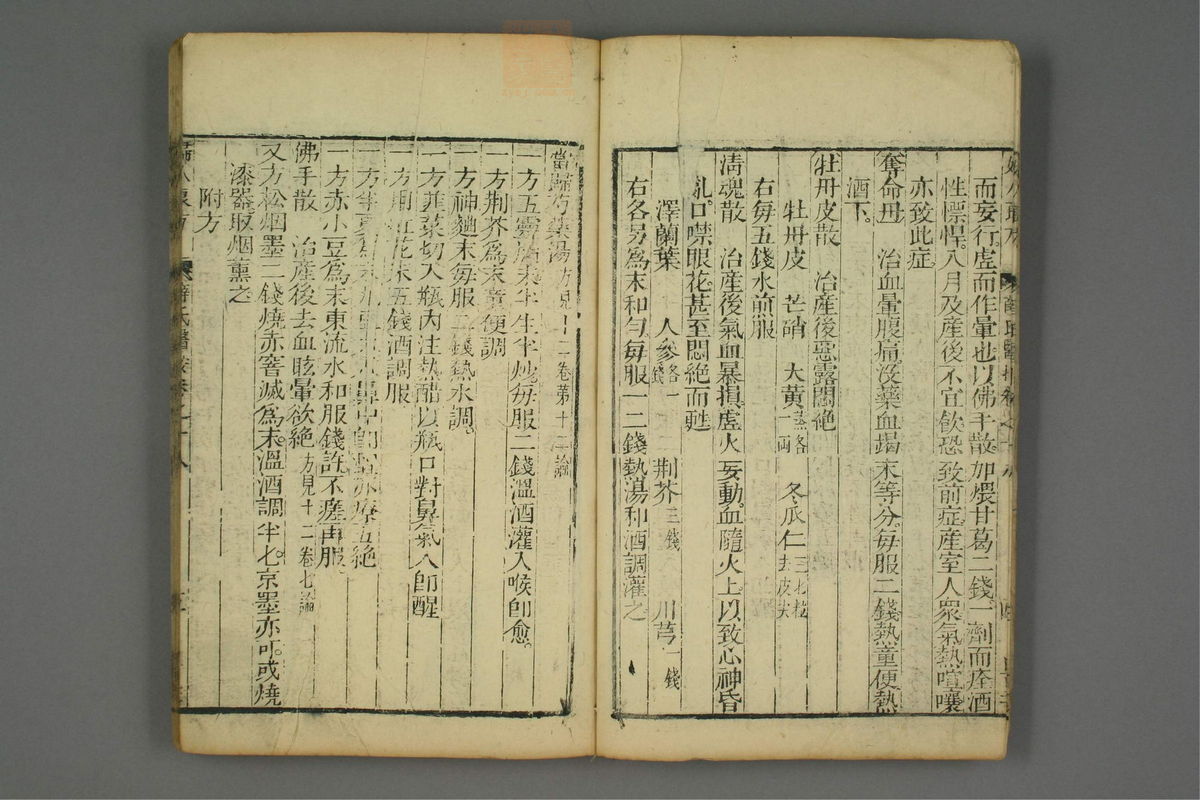 而妄行。虛而作暈也。以佛手散加煨甘葛二錢一劑而痊。酒
性慓悍。八月及產後不宜飲。恐致前症。產室人衆氣熱喧嚷
亦致此症
奪命丹　治血暈腹痛沒藥血竭末等分。每服二錢熱童便熱
酒下。
牡丹皮散　治產後惡露悶絶
牡丹皮　芒硝　大黄蒸各一兩　冬瓜仁三七粒去皮尖
右每五錢水煎服
清魂散　治產後氣血暴損。虛火妄動。血隨火上。以致心神昏
亂。口噤眼花。甚至悶絶而甦
澤蘭葉　人參各一錢　荆芥三錢　川芎一錢
右各另爲末和勻。每服一二錢熱湯和酒調灌之
當歸芍藥湯方見十二卷第十二論
一方五靈脂末半生半炒。每服二錢溫酒灌入喉卽愈。
一方荆芥爲末童便調
一方神麯末每服二錢熱水調。
一方韭菜切入瓶內注熱醋以瓶口對鼻氣入卽醒
一方用紅花末五錢酒調服
一方半夏末鼻中卽醒亦療五絶
一方赤小豆爲末東流水和服錢許不瘥再服
佛手散　治產後去血眩暈欲絶方見十二卷七論
又方松烟墨二錢燒赤窨滅爲末。溫酒調半匕。京墨亦可。或燒
漆器取烟薰之
附方